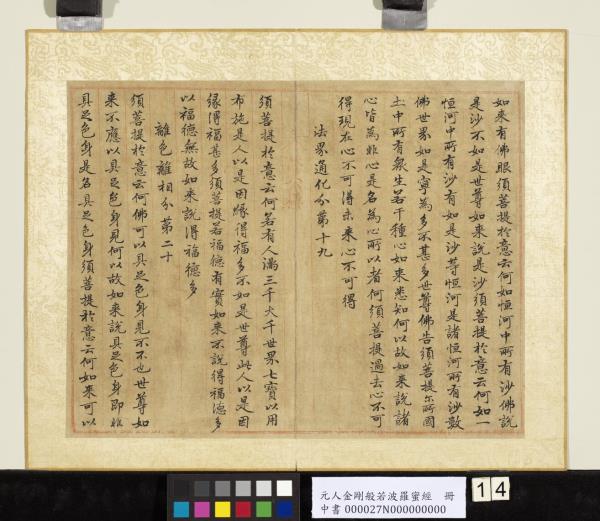 如來有佛眼須菩提於意云何如恒河中所有沙佛說
是沙不如是世尊如來說是沙須菩提於意云何如一
恒河中所有沙有如是沙等恒河是諸恒河所有沙數
佛世界如是寧為多不甚多世尊佛告須菩提尒所國
土中所有眾生若干種心如來悉知何以故如來說諸
心皆為非心是名為心所以者何須菩提過去心不可
得現在心不可得未來心不可得
法界通化分第十九
須菩提於意云何若有人滿三千大千世界七寶以用
布施是人以是因緣得福多不如是世尊此人以是因
緣得福甚多須菩提若福德有實如來不說得福德多
以福德無故如來說得福德多
離色離相分第二十
須菩提於意云何佛可以具足色身見不不也世尊如
來不應以具足色身見何以故如來說具足色身即非
具足色身是名具足色身須菩提於意云何如來可以
元人金剛般若波羅蜜經 冊
中書 000027N000000000
14